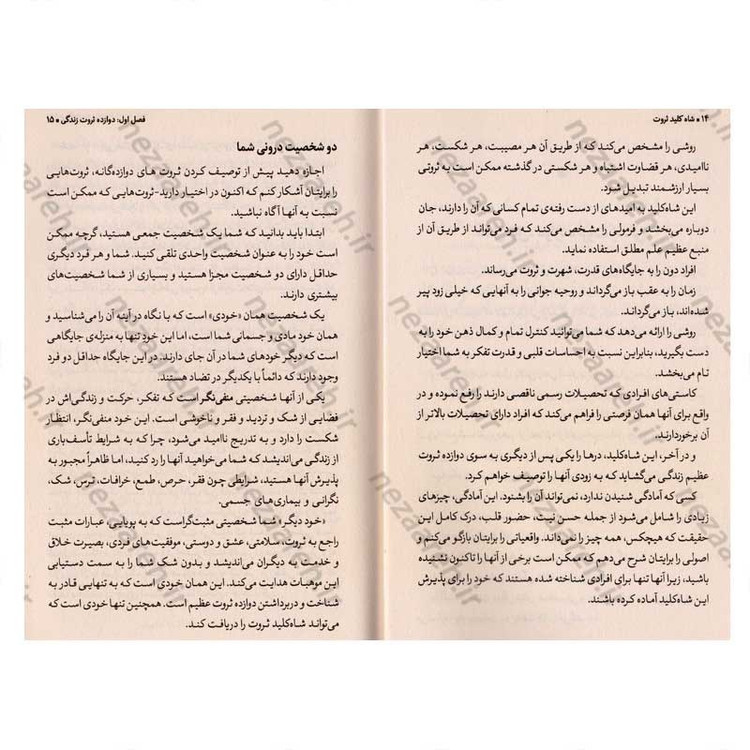 ۱۴ • شاه کلید ثروت
روشی را مشخص می‌کند که از طریق آن هر مصیبت، هر شکست، هر
ناامیدی، هر قضاوت اشتباه و هر شکستی در گذشته ممکن است به ثروتی
بسیار ارزشمند تبدیل شود.
این شاه‌کلید به امیدهای از دست رفته‌ی تمام کسانی که آن را دارند، جان
دوباره می‌بخشد و فرمولی را مشخص می‌کند که فرد می‌تواند از طریق آن از
منبع عظیم علم مطلق استفاده نماید.
افراد دون را به جایگاه‌های قدرت، شهرت و ثروت می‌رساند.
زمان را به عقب باز می‌گرداند و روحیه جوانی را به آنهایی که خیلی زود پیر
شده‌اند، باز می‌گرداند.
روشی را ارائه می‌دهد که شما می‌توانید کنترل تمام و کمال ذهن خود را به
دست بگیرید، بنابراین نسبت به احساسات قلبی و قدرت تفکر به شما اختیار
تام می‌بخشد.
کاستی‌های افرادی که تحصیلات رسمی ناقصی دارند را رفع نموده و در
واقع برای آنها همان فرصتی را فراهم می‌کند که افراد دارای تحصیلات بالاتر از
آن برخوردارند.
و در آخر، این شاه‌کلید، درها را یکی پس از دیگری به سوی دوازده ثروت
عظیم زندگی می‌گشاید که به زودی آنها را توصیف خواهم کرد.
کسی که آمادگی شنیدن ندارد، نمی‌تواند آن را بشنود. این آمادگی، چیزهای
زیادی را شامل می‌شود از جمله حسن نیت، حضور قلب، درک کامل این
حقیقت که هیچکس، همه چیز را نمی‌داند. واقعیاتی را برایتان بازگو می‌کنم و
اصولی را برایتان شرح می‌دهم که ممکن است برخی از آنها را تاکنون نشنیده
باشید، زیرا آنها تنها برای افرادی شناخته شده هستند که خود را برای پذیرش
این شاه‌کلید آماده کرده باشند.
فصل اول: دوازده ثروت زندگی • ۱۵
دو شخصیت درونی شما
اجازه دهید پیش از توصیف کردن ثروت های دوازده‌گانه، ثروت‌هایی
را برایتان آشکار کنم که اکنون در اختیار دارید-ثروت‌هایی که ممکن است
نسبت به آنها آگاه نباشید.
ابتدا باید بدانید که شما یک شخصیت جمعی هستید، گرچه ممکن
است خود را به عنوان شخصیت واحدی تلقی کنید. شما و هر فرد دیگری
حداقل دارای دو شخصیت مجزا هستید و بسیاری از شما شخصیت‌های
بیشتری دارند.
یک شخصیت همان «خودی» است که با نگاه در آینه آن را می‌شناسید و
همان خود مادی و جسمانی شما است، اما این خود تنها به منزله‌ی جایگاهی
است که دیگر خودهای شما در آن جای دارند. در این جایگاه حداقل دو فرد
وجود دارند که دائماً با یکدیگر در تضاد هستند.
یکی از آنها شخصیتی منفی‌نگر است که تفکر، حرکت و زندگی‌اش در
فضایی از شک و تردید و فقر و ناخوشی است. این خود منفی‌نگر، انتظار
شکست را دارد و به تدریج ناامید می‌شود، چرا که به شرایط تأسف‌باری
از زندگی می‌اندیشد که شما می‌خواهید آنها را رد کنید، اما ظاهراً مجبور به
پذیرش آنها هستید، شرایطی چون فقر، حرص، طمع، خرافات، ترس، شک،
نگرانی و بیماری‌های جسمی.
«خود دیگر» شما شخصیتی مثبت‌گراست که به پویایی، عبارات مثبت
راجع به ثروت، سلامتی، عشق و دوستی، موفقیت‌های فردی، بصیرت خلاق
و خدمت به دیگران می‌اندیشد و بدون شک شما را به سمت دستیابی
این موهبات هدایت می‌کند. این همان خودی است که به تنهایی قادر به
شناخت و دربرداشتن دوازده ثروت عظیم است. همچنین تنها خودی است که
می‌تواند شاه‌کلید ثروت را دریافت کند.
nezaareh.ir